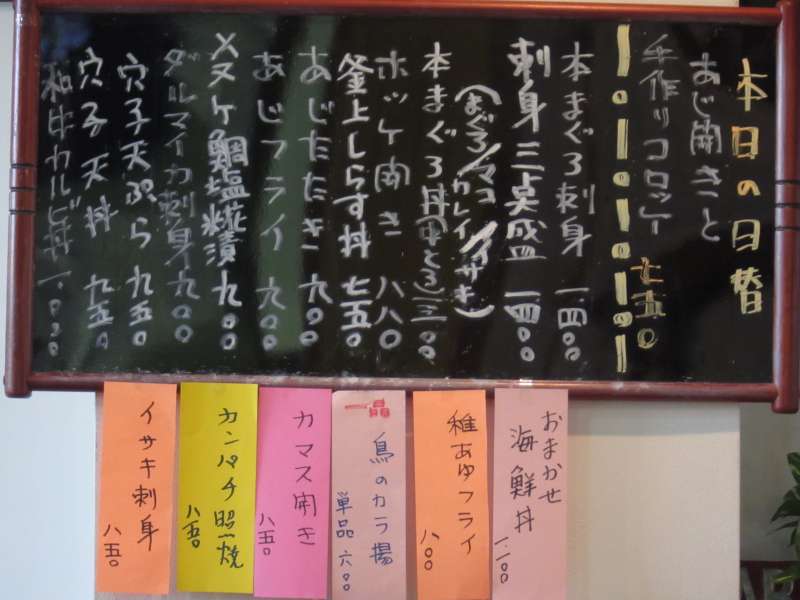 本日の日替
あじ開きと
手作りコロッケ 七五〇
本まぐろ刺身 一.四〇〇
刺身三点盛 一.四〇〇
(まぐろ/マコカレイ/イサキ)
本まぐろ丼(中とろ)一.三〇〇
ホッケ開き 八八〇
釜上しらす丼 七五〇
あじたたき 九〇〇
あじフライ 九〇〇
メヌケ鯛塩糀漬 九〇〇
ダルマイカ刺身 九〇〇
穴子天ぷら 九五〇
穴子天丼 九五〇
和牛カルビ丼 一.〇〇〇
おまかせ
海鮮丼 一.一〇〇
稚あゆフライ 八〇〇
一品
鳥のカラ揚
単品 六〇〇
カマス開き 八五〇
カンパチ照焼 八五〇
イサキ刺身 八五〇